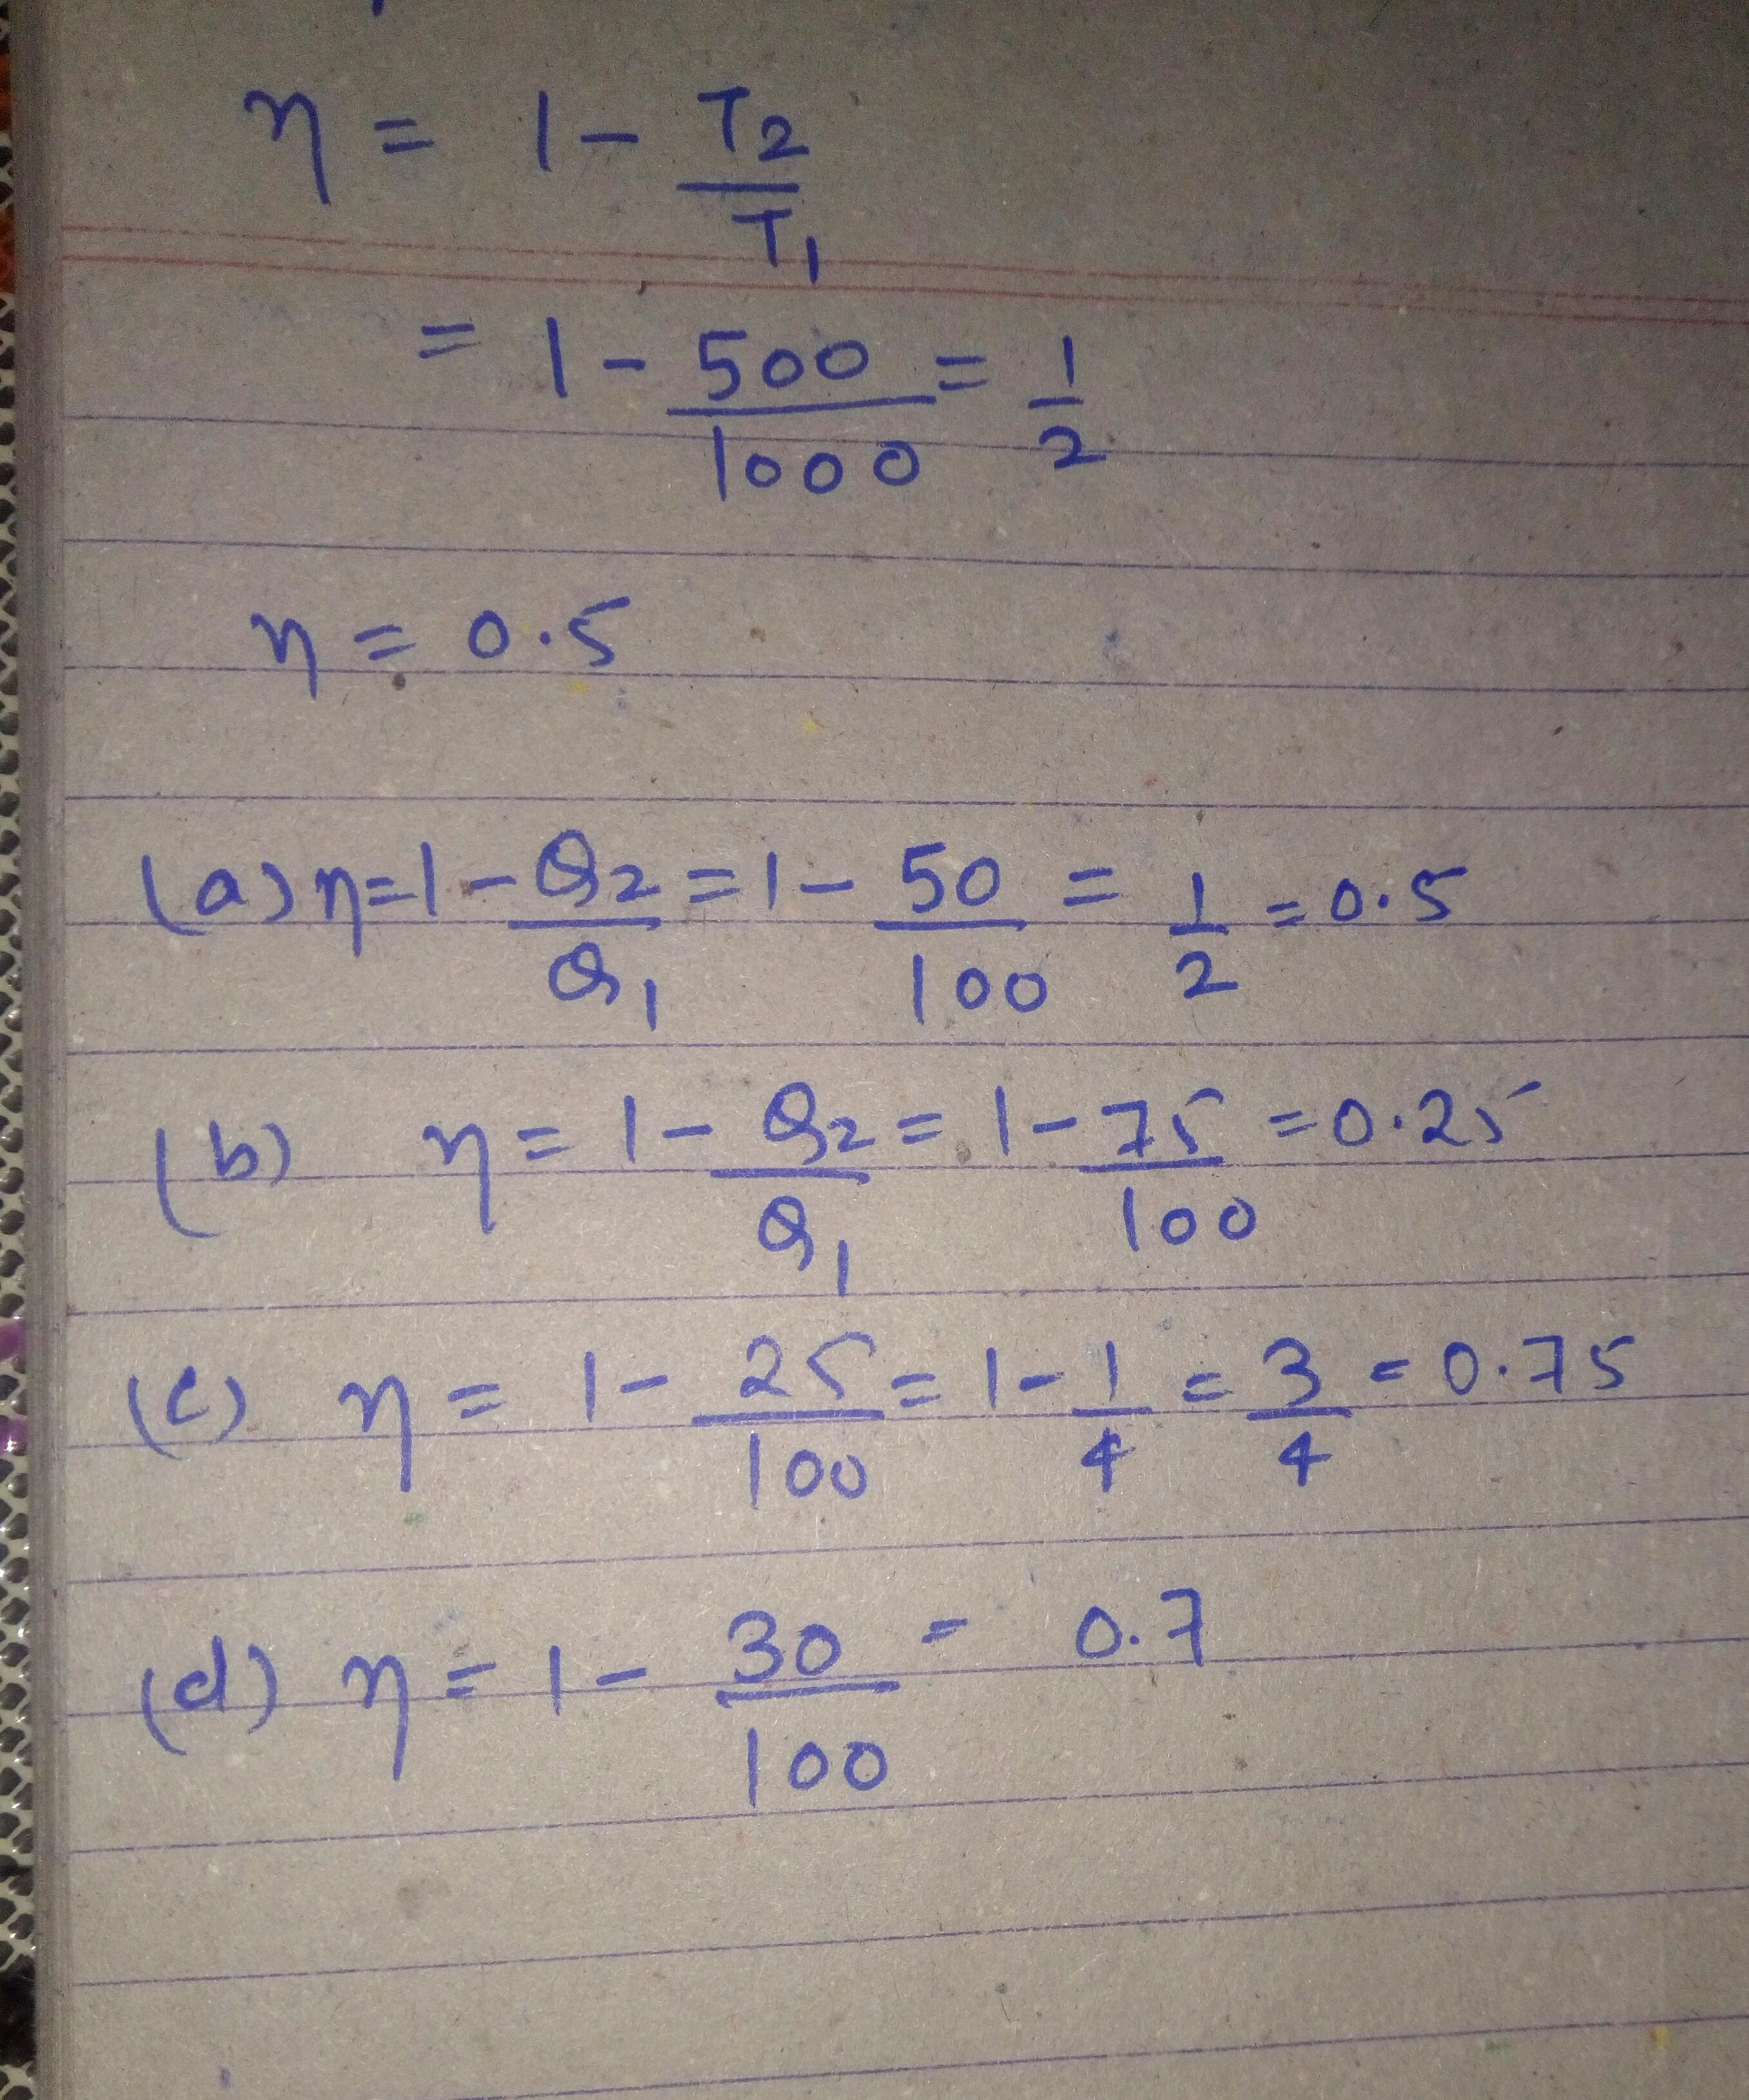 η = 1 - T2/T1
= 1 - 500/1000 = 1/2
η = 0.5
(a) η = 1 - Q2/Q1 = 1 - 50/100 = 1/2 = 0.5
(b) η = 1 - Q2/Q1 = 1 - 75/100 = 0.25
(c) η = 1 - 25/100 = 1 - 1/4 = 3/4 = 0.75
(d) η = 1 - 30/100 = 0.7